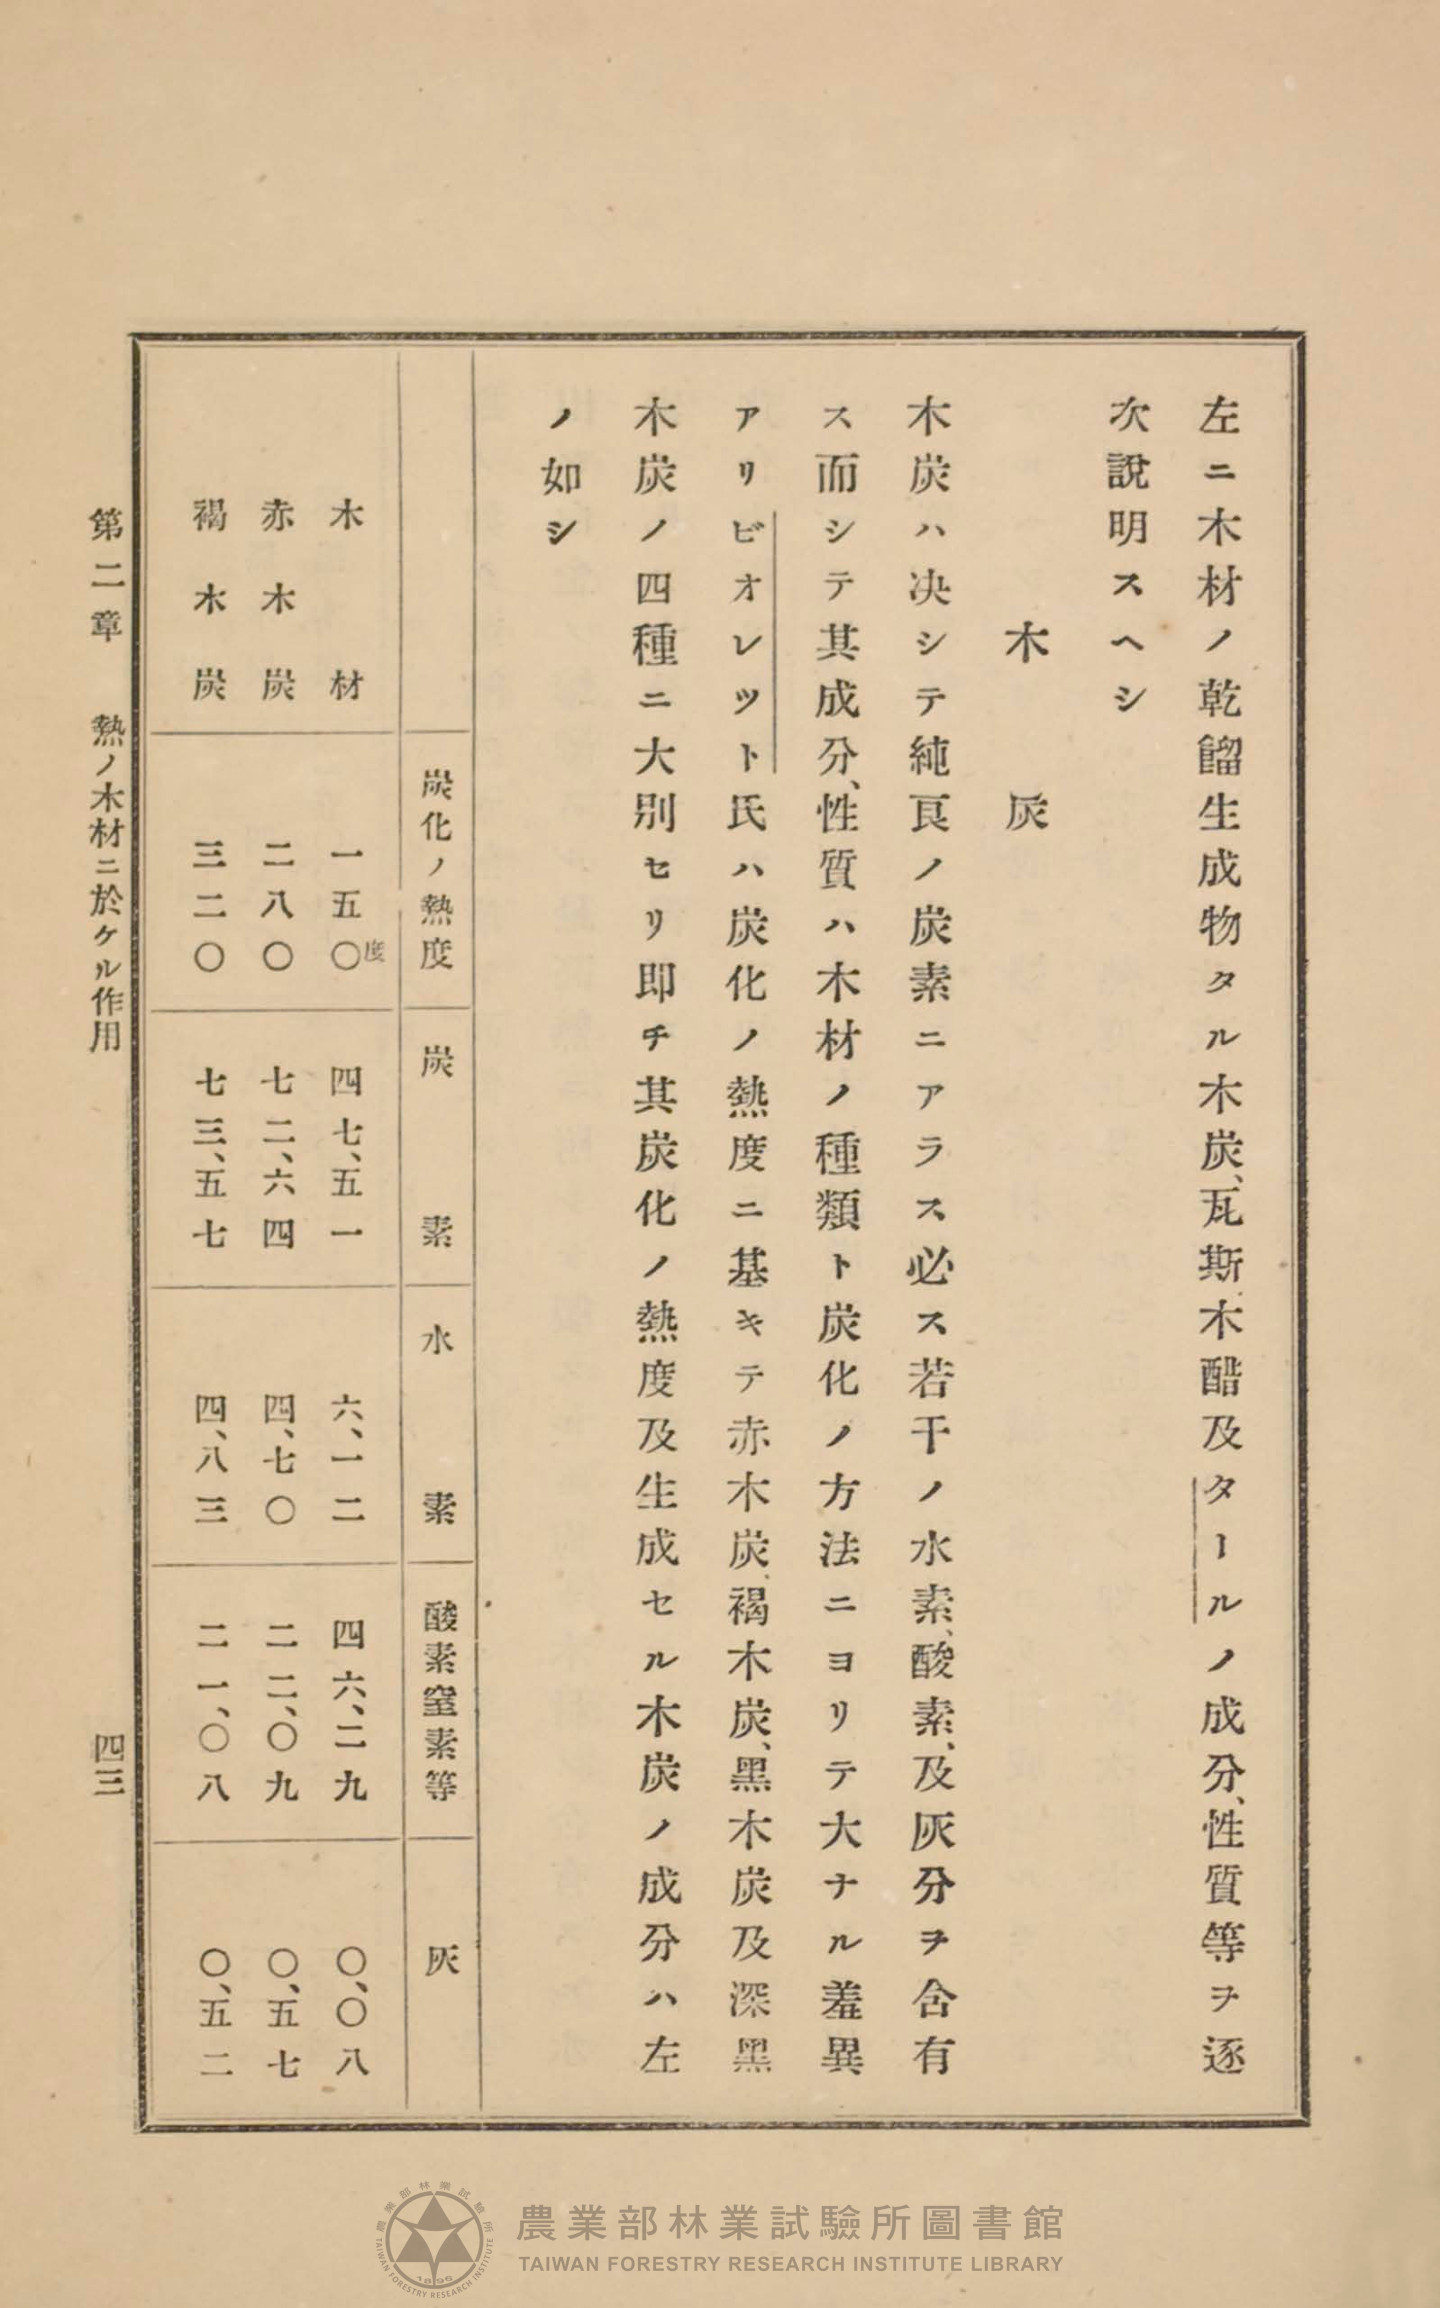 左ニ木材ノ乾餾生成物タル木炭、瓦斯木醋及タールノ成分、性質等ヲ逐
次說明スヘシ
木灰
木炭ハ決シテ純良ノ炭素ニアラス必ス若干ノ水素、酸素、及灰分ヲ含有
ス而シテ其成分、性質ハ木材ノ種類ト炭化ノ方法ニヨリテ大ナル差異
アリビオレツト氏ハ炭化ノ熱度ニ基キテ赤木炭、褐木炭、黑木炭及深黑
木炭ノ四種ニ大別セリ即チ其炭化ノ熱度及生成セル木炭ノ成分ハ左
ノ如シ
炭化ノ熱度 炭素 水素 酸素窒素等 灰
木材 一五〇度 四七、五一 六、一二 四六、二九 〇、〇八
赤木炭 二八〇 七二、六四 四、七〇 二二、〇九 〇、五七
褐木炭 三二〇 七三、五七 四、八三 二一、〇八 〇、五二
第二章 熱ノ木材ニ於ケル作用 四三
農業部林業試驗所圖書館
TAIWAN FORESTRY RESEARCH INSTITUTE LIBRARY
農業部林業試驗所
TAIWAN FORESTRY RESEARCH INSTITUTE
1896